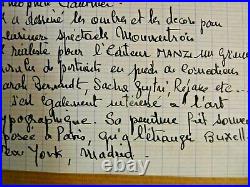 Théophile Gautier.
a dessiné les ombres et les décors pour
plusieurs spectacles Mounsentron
réaliste pour l'Editeur MANZI un grand
de portraits en pieds de comédiens
Sarah Bernardt, Sacha Guytri, Réjane etc...
s'est également intéressé à l'art
typographique. Sa peinture fait souvent
exposée à Paris, qu'à l'étranger Buxell
New York, Madrid